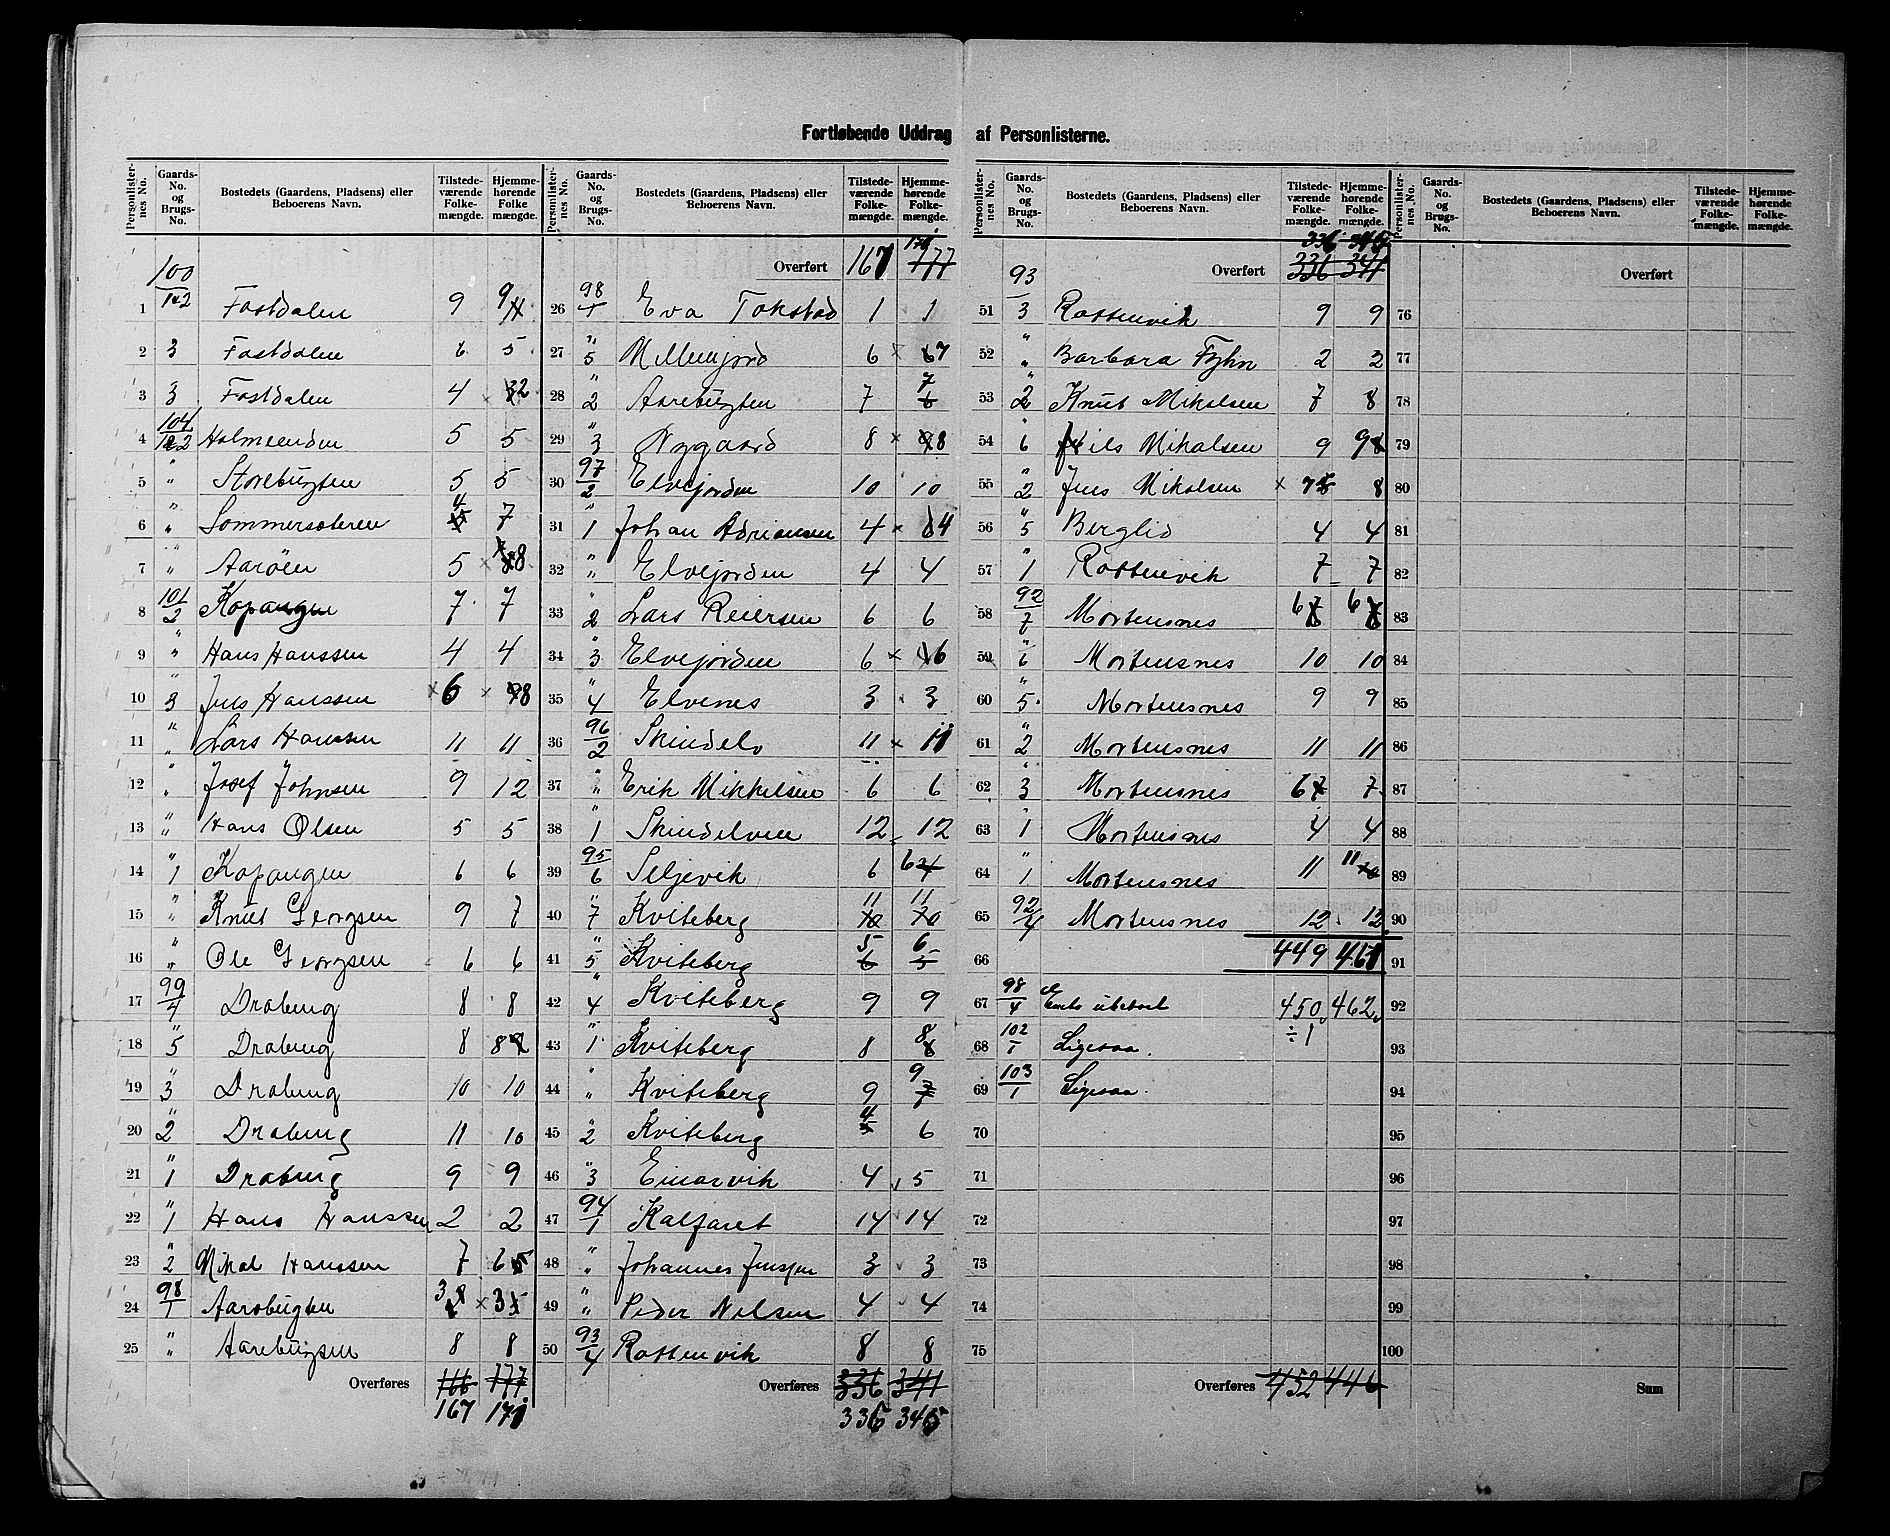 Fortløbende Uddrag af Personlisterne.
Personlister-nes No. | Gaards-No. og Brugs-No. | Bostedets (Gaardens, Pladsens) eller Beboerens Navn. | Tilstede-værende Folke-mængde. | Hjemme-hørende Folke mængde.
100
1 | 1&2 | Fastdalen | 9 | 9
2 | 3 | Fastdalen | 6 | 5
3 | 3 | Fastdalen | 4 | 2
4 | 104/1&2 | Holmeenden | 5 | 5
5 | " | Storebugten | 5 | 5
6 | " | Sommersæteren | 4 | 7
7 | " | Aarøen | 5 | 8
8 | 101/2 | Kopangen | 7 | 7
9 | " | Hans Hanssen | 4 | 4
10 | "/3 | Jens Hanssen | 6 | 8
11 | " | Lars Hanssen | 11 | 11
12 | " | Josef Johnsen | 9 | 12
13 | " | Hans Olsen | 5 | 5
14 | "/1 | Kopangen | 6 | 6
15 | " | Knut Georgsen | 9 | 7
16 | " | Ole Georgsen | 6 | 6
17 | 99/4 | Drabeng | 8 | 8
18 | "/5 | Drabeng | 8 | 8
19 | "/3 | Drabeng | 10 | 10
20 | "/2 | Drabeng | 11 | 10
21 | "/1 | Drabeng | 9 | 9
22 | "/1 | Hans Hanssen | 2 | 2
23 | "/2 | Mikal Hanssen | 7 | 6
24 | 98/1 | Aarebugten | 3 | 3
25 | " | Aarebugten | 8 | 8
Overføres | 166 | 177
167 | 171
Personlister-nes No. | Gaards-No. og Brugs-No. | Bostedets (Gaardens, Pladsens) eller Beboerens Navn. | Tilstede-værende Folke-mængde. | Hjemme-hørende Folke-mængde.
Overført | 167 | 177
26 | 98/1 | Eva Tokstad | 1 | 1
27 | "/5 | Mellemjord | 6 | 7
28 | "/2 | Aarebugten | 7 | 7
29 | "/3 | Nygaard | 8 | 8
30 | 97/2 | Elvejorden | 10 | 10
31 | "/1 | Johan Adriansen | 4 | 4
32 | " | Elvejorden | 4 | 4
33 | "/2 | Lars Reiersen | 6 | 6
34 | "/3 | Elvejorden | 6 | 6
35 | "/4 | Elvenes | 3 | 3
36 | 96/2 | Skindelv | 11 | 11
37 | " | Erik Mikkelsen | 6 | 6
38 | "/1 | Skindelven | 12 | 12
39 | 95/6 | Seljevik | 6 | 6
40 | "/7 | Kviteberg | 11 | 11
41 | "/5 | Kviteberg | 5 | 6
42 | "/4 | Kviteberg | 9 | 9
43 | "/1 | Kviteberg | 8 | 8
44 | " | Kviteberg | 9 | 9
45 | "/2 | Kviteberg | 4 | 6
46 | "/3 | Einarvik | 4 | 5
47 | 94/1 | Kalfaret | 14 | 14
48 | " | Johannes Jensen | 3 | 3
49 | " | Peder Nelsen | 4 | 4
50 | 93/4 | Rottenvik | 8 | 8
Overføres | 336 | 341
335 | 345
Personlister-nes No. | Gaards-No. og Brugs-No. | Bostedets (Gaardens, Pladsens) eller Beboerens Navn. | Tilstede-værende Folke-mængde. | Hjemme-hørende Folke-mængde.
336 | 345
Overført | 336 | 341
51 | 93/3 | Rottenvik | 9 | 9
52 | " | Barbara Fyhn | 2 | 2
53 | "/2 | Knut Mikalsen | 7 | 8
54 | "/6 | Nils Mikalsen | 9 | 9
55 | "/2 | Jens Mikalsen | 7 | 8
56 | "/5 | Berglid | 4 | 4
57 | "/1 | Rottenvik | 7 | 7
58 | 92/7 | Mortensnes | 6 | 6
59 | "/6 | Mortensnes | 10 | 10
60 | "/5 | Mortensnes | 9 | 9
61 | "/2 | Mortensnes | 11 | 11
62 | "/3 | Mortensnes | 6 | 7
63 | "/1 | Mortensnes | 4 | 4
64 | "/1 | Mortensnes | 11 | 11
65 | 92/4 | Mortensnes | 12 | 12
66 | 449 | 461
67 | 98/4 | Er ubeboet | 450 | 462
68 | 102/1 | Ligesaa. | ÷1
69 | 103/1 | Ligesaa.
70
71
72
73
74
75
Overføres | 452 | 446
Personlister-nes No. | Gaards-No. og Brugs-No. | Bostedets (Gaardens, Pladsens) eller Beboerens Navn. | Tilstede-værende Folke-mængde. | Hjemme-hørende Folke-mængde.
Overført
76
77
78
79
80
81
82
83
84
85
86
87
88
89
90
91
92
93
94
95
96
97
98
99
100
Sum